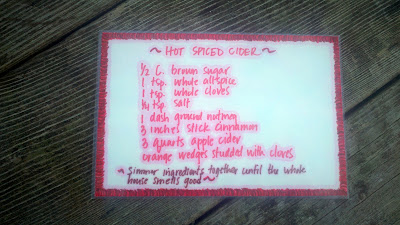 ~ HOT SPICED CIDER ~
½ C. brown sugar
1 tsp. whole allspice
1 tsp. whole cloves
¼ tsp. salt
1 dash ground nutmeg
3 inches stick cinnamon
3 quarts apple cider
orange wedges studded with cloves
~ Simmer ingredients together until the whole
house smells good ~